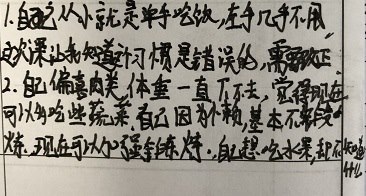 1.自己从小就是单手吃饭,左手几乎不用
这次课让我知道这习惯是错误的,需要改正
2.自己偏喜肉类,体重一直下不去,觉得现在
可以多吃些蔬菜.自己因为懒,基本不锻
炼.现在可以加强锻炼.自己想吃水果,却不知道
什么